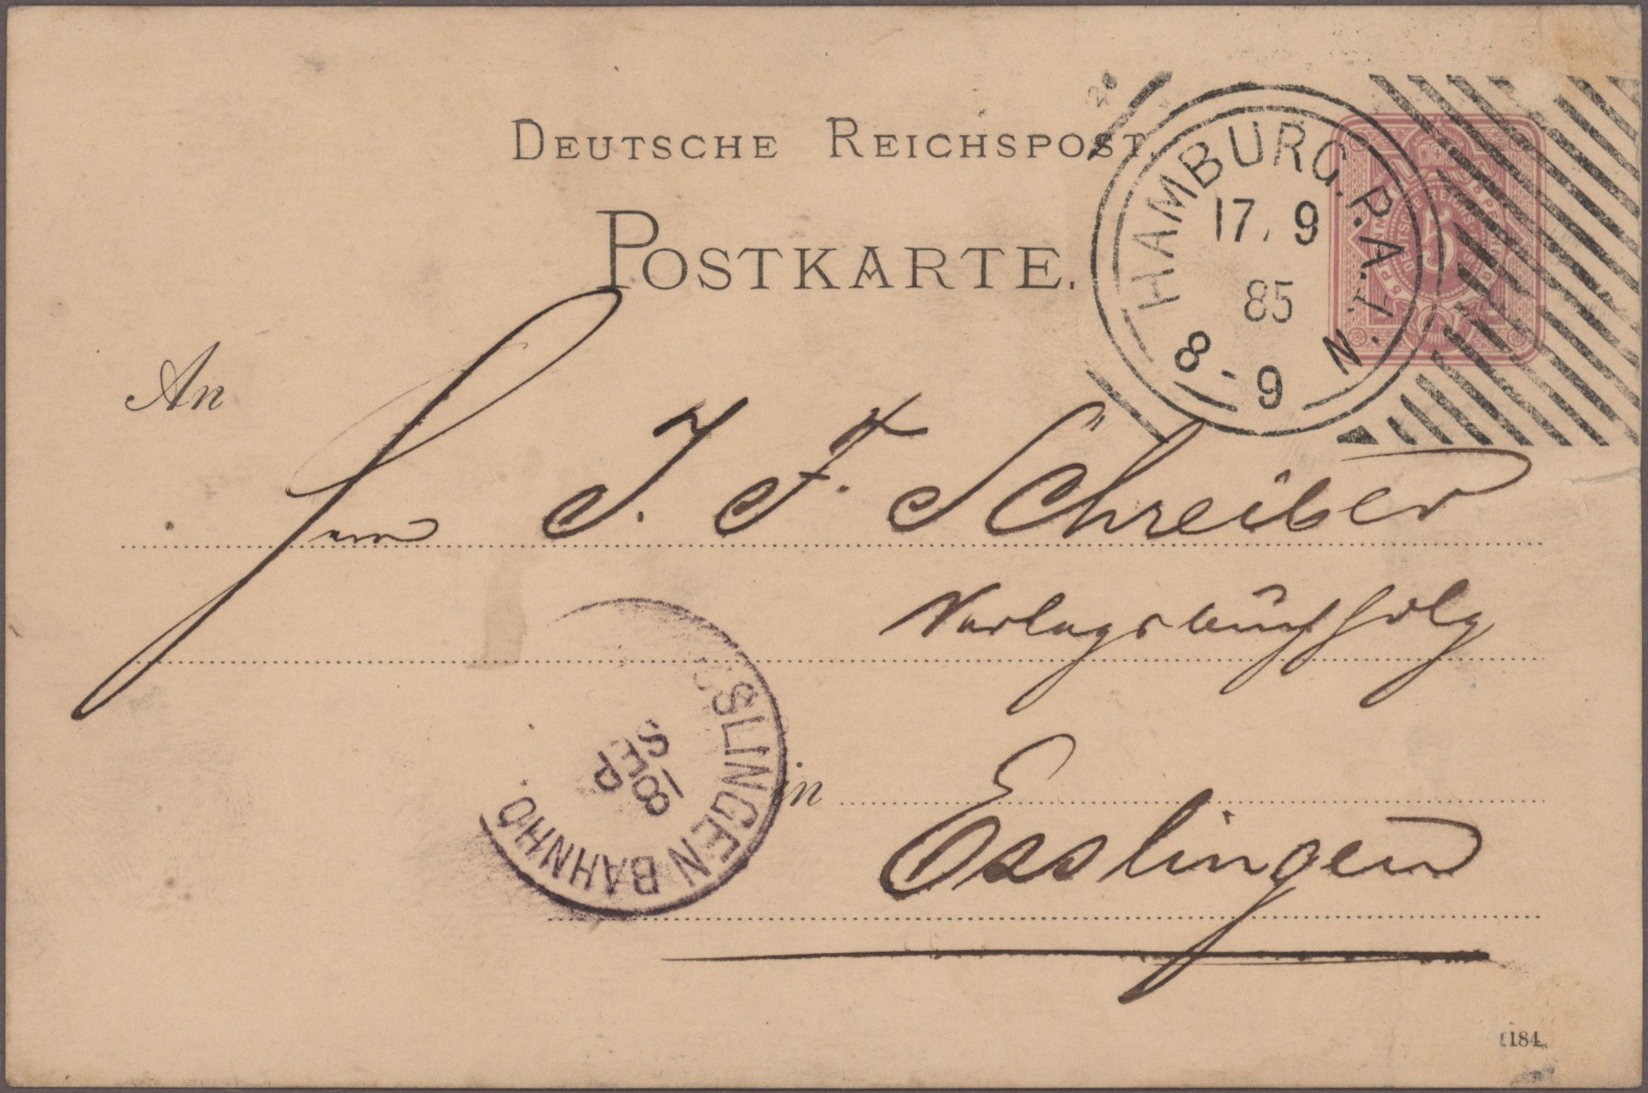 DEUTSCHE REICHSPOST.
POSTKARTE.
HAMBURG.P.A.
17. 9
85
8-9 N.
5
An
J. F. Schreiber
Verlagsbuchhdlg
SSLINGEN BAHNHO
18
SEP
in
Esslingen
1184